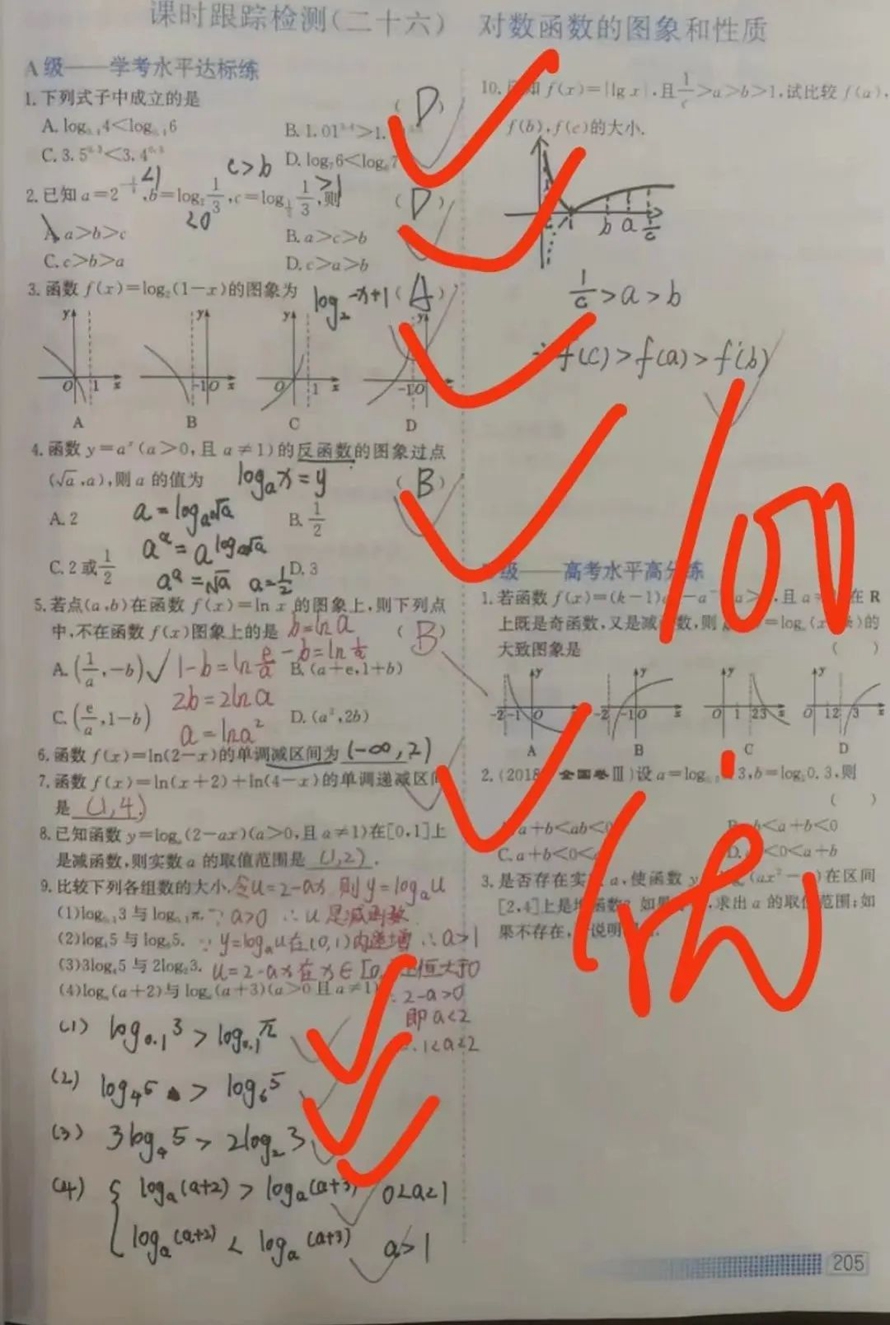 课时跟踪检测(二十六) 对数函数的图象和性质
A级——学考水平达标练
1.下列式子中成立的是 ( D )
A. log₀.₁4<log₀.₁6 B. 1.01³·⁴>1.
C. 3.5⁰·³<3.4⁰·³ D. log₇6<log₆7
c>b
<1 >1
2.已知a=2 ,b=log₂1/3,c=log 1/3,则 ( D )
<0
A. a>b>c B. a>c>b
C. c>b>a D. c>a>b
3.函数f(x)=log₂(1-x)的图象为 log₂ -x+1 ( A )
y y y y
O 1 x -1 O x O 1 x -1 O x
A B C D
4.函数y=aˣ(a>0,且a≠1)的反函数的图象过点
(√a,a),则a的值为 logₐx=y ( B )
A. 2 a=logₐ√a B. 1/2
aᵃ=a logₐ√a
C. 2或1/2 aᵃ=√a a=1/2 D. 3
5.若点(a,b)在函数f(x)=ln x的图象上,则下列点
中,不在函数f(x)图象上的是 b=lna ( B )
A. (1/a,-b) ✓ 1-b=ln e/a -b=ln 1/a B. (a+e,1+b)
2b=2lna
C. (e/a,1-b) D. (a²,2b)
a=lna²
6.函数f(x)=ln(2-x)的单调减区间为 (-∞,2)
7.函数f(x)=ln(x+2)+ln(4-x)的单调递减区间
是 (1,4).
8.已知函数y=logₐ(2-ax)(a>0,且a≠1)在[0,1]上
是减函数,则实数a的取值范围是 (1,2).
9.比较下列各组数的大小. 令u=2-ax 则y=logₐu
(1)log₀.₁3与log₀.₁π. ∵a>0 ∴u是减函数
(2)log₄5与log₆5. ∵y=logₐu在(0,1)内递增 ∴a>1
(3)3log₄5与2log₂3. u=2-ax在x∈[0, 恒大于0
(4)logₐ(a+2)与logₐ(a+3)(a>0且a≠1) 2-a>0
即a<2
∴1<a<2
(1) log₀.₁3 > log₀.₁π
(2) log₄5 > log₆5
(3) 3log₄5 > 2log₂3
(4) { logₐ(a+2) > logₐ(a+3) 0<a<1
logₐ(a+2) < logₐ(a+3) a>1
10. 知f(x)=|lg x|,且1/c>a>b>1,试比较f(a),
f(b),f(c)的大小.
1 b a 1/c
1/c >a>b
∴f(c)>f(a)>f(b)
100
级——高考水平高分练
1.若函数f(x)=(k-1)a -a (a>0,且a≠ 在R
上既是奇函数,又是减 数,则 =logₐ(x )的
大致图象是 ( )
y y y y
-2 -1 O x -2 -1 O x O 1 2 3 x O 1 2 3 x
A B C D
2.(2018· 全国卷Ⅲ)设a=log 3,b=log₂0.3,则
( )
a+b<ab<0 b<a+b<0
C. a+b<0< D. <0<a+b
3.是否存在实 a,使函数y (ax²- )在区间
[2,4]上是增函数? 如果 ,求出a的取值范围;如
果不存在, 说明
205